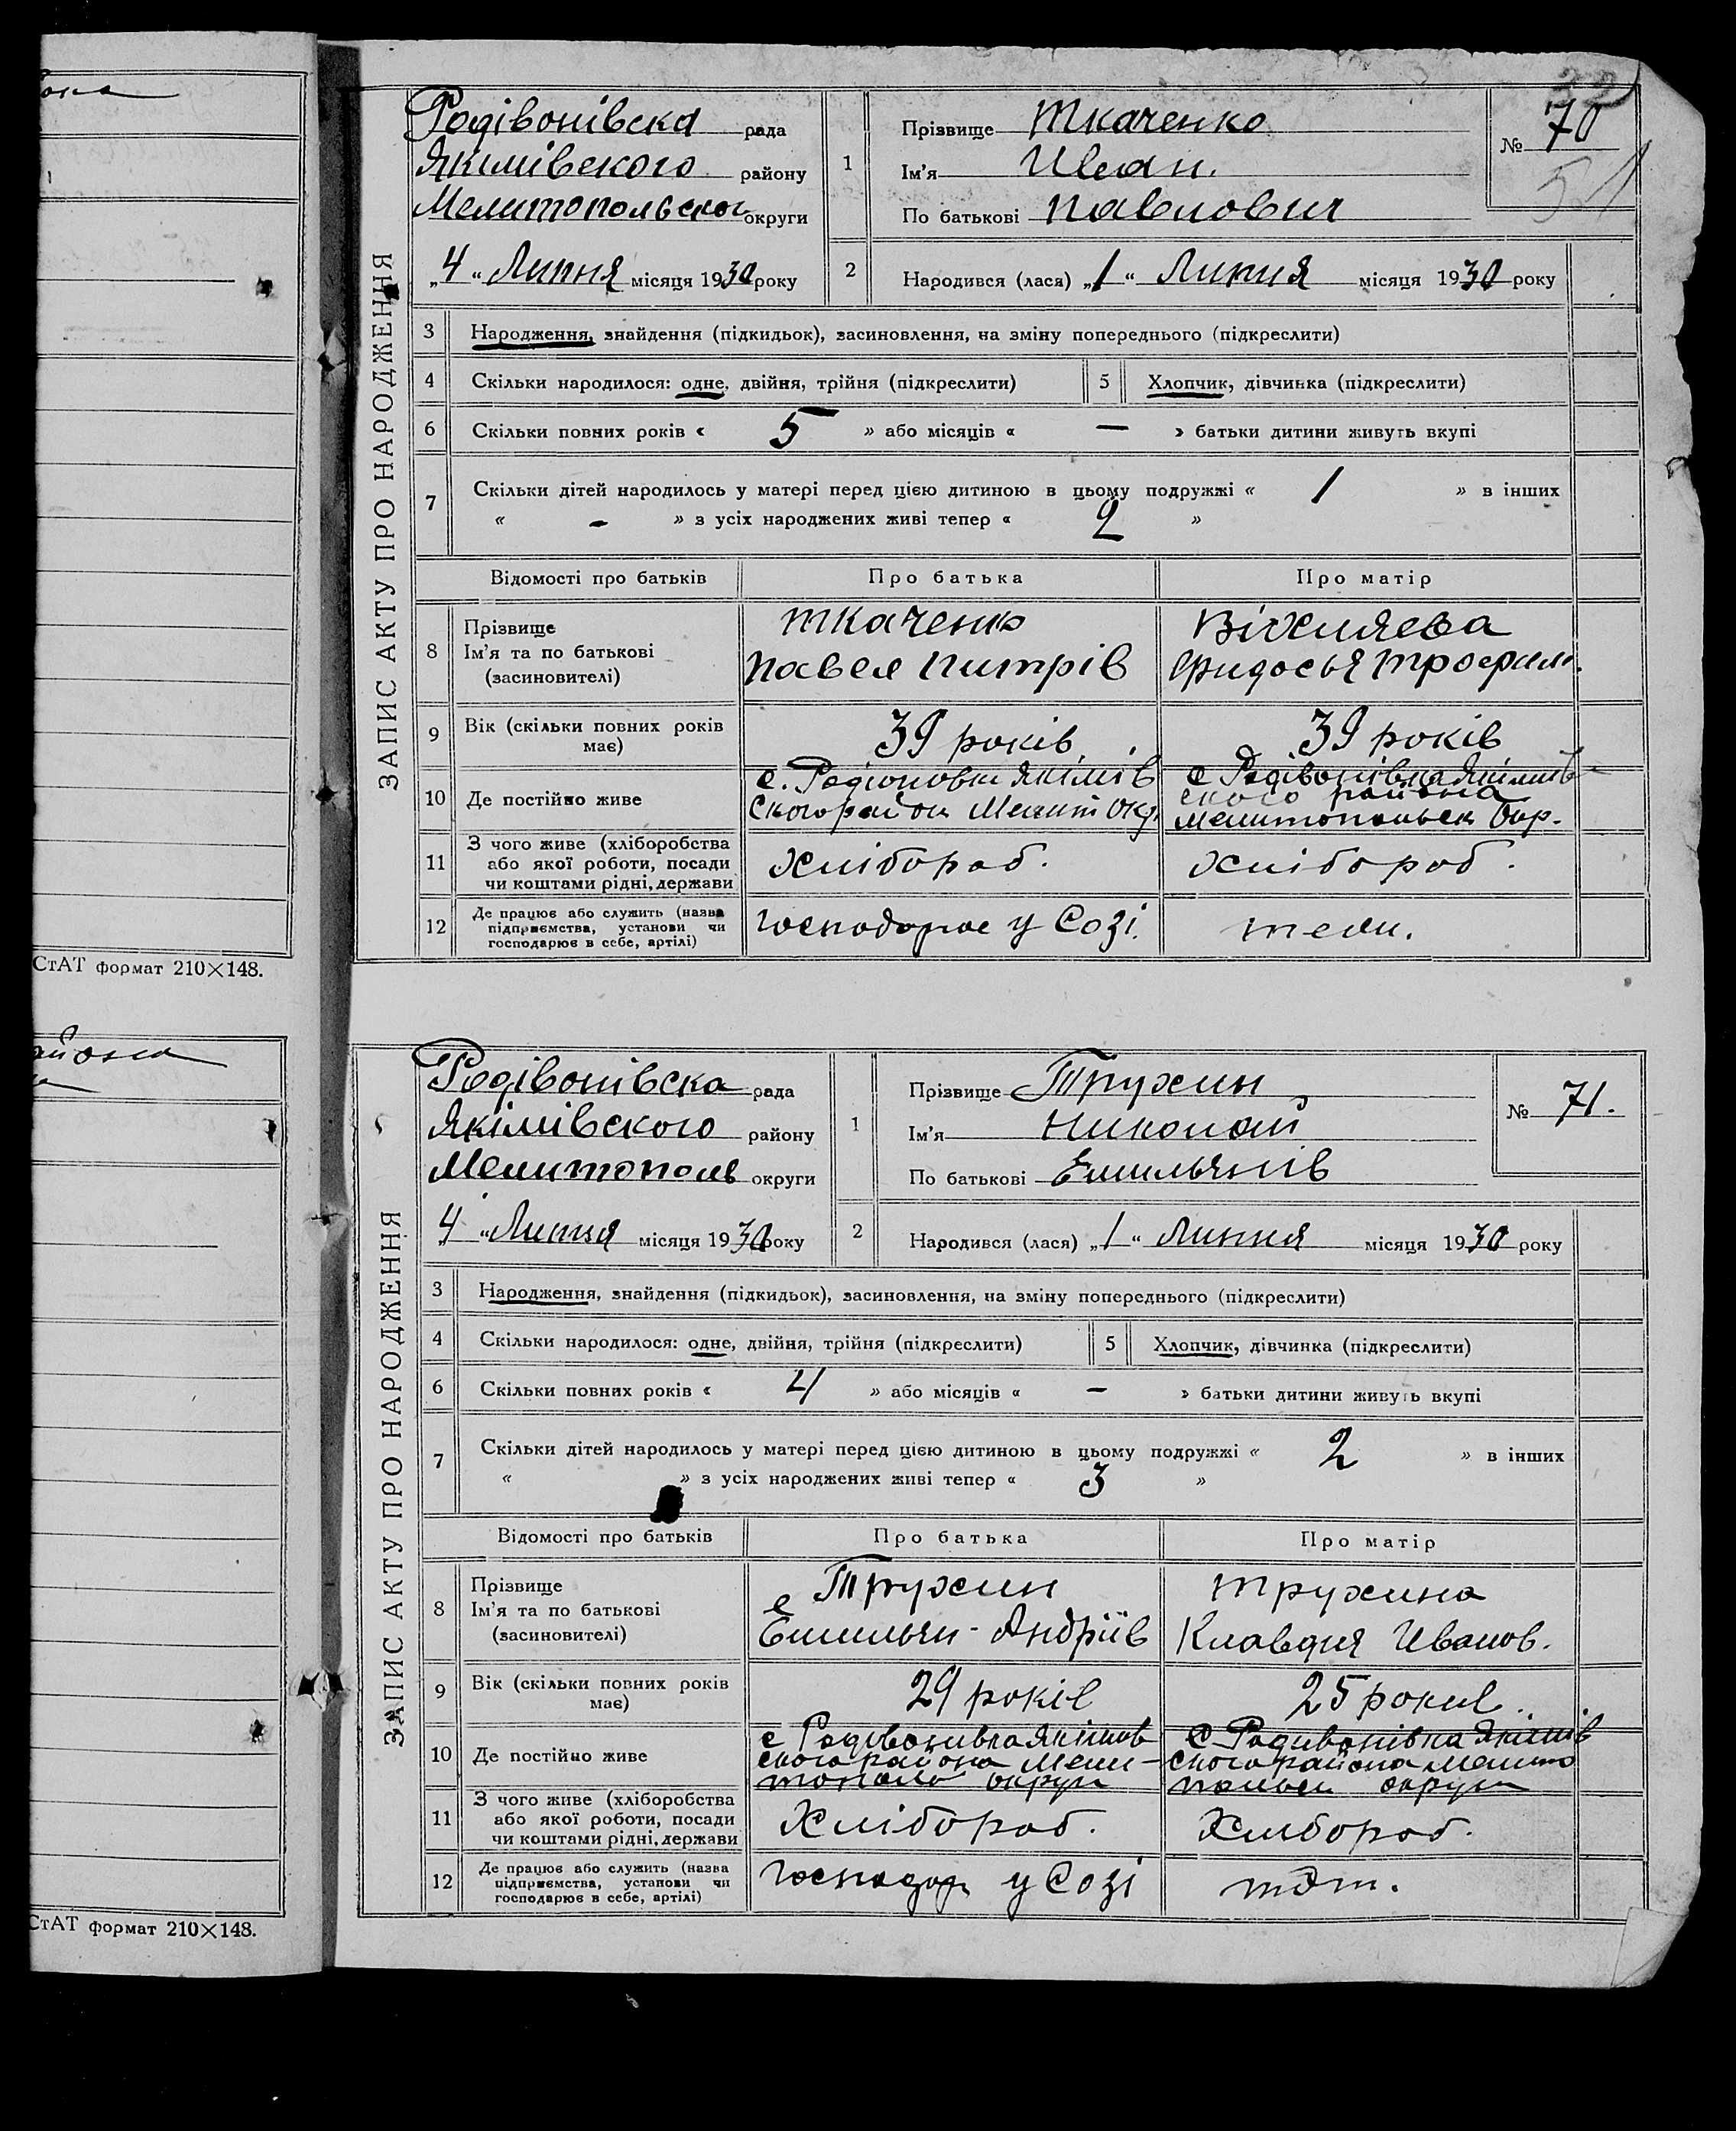 она
СтАТ формат 210×148.
айона
СтАТ формат 210×148.
ЗАПИС АКТУ ПРО НАРОДЖЕННЯ
Родівонівска рада
Якімівского району
Мелитопольског округи
„4“ Липня місяця 1930 року
1
Прізвище Ткаченко
Ім'я Иван.
По батькові Павлович
32
№ 70
51
2
Народився (лася) „1“ Липня місяця 1930 року
3 Народження, знайдення (підкидьок), засиновлення, на зміну попереднього (підкреслити)
4 Скільки народилося: одне, двійня, трійня (підкреслити)
5 Хлопчик, дівчинка (підкреслити)
6 Скільки повних років « 5 » або місяців « — » батьки дитини живуть вкупі
7 Скільки дітей народилось у матері перед цією дитиною в цьому подружжі « 1 » в інших
« - » з усіх народжених живі тепер « 2 »
Відомості про батьків Про батька Про матір
8 Прізвище
Ім'я та по батькові
(засиновителі)
Ткаченко
Павел Питрів
Віхиляева
Фидосья Трофим.
9 Вік (скільки повних років
має)
39 років
39 років
10 Де постійно живе
с. Родіоновки Якімів
ского район Мелит Окр.
с Родівонівка Якимів
ского района
Мелитопольск Окр.
11 З чого живе (хліборобства
або якої роботи, посади
чи коштами рідні, держави
Хлібороб.
Хлібороб.
12 Де працює або служить (назва
підприємства, установи чи
господарює в себе, артілі)
Господорює у Созі.
ЗАПИС АКТУ ПРО НАРОДЖЕННЯ
Родівонівска рада
Якімівского району
Мелитополь округи
„4“ Липня місяця 1930 року
1
Прізвище Трухин
Ім'я Николай
По батькові Емильянів
№ 71.
2
Народився (лася) „1“ Липня місяця 1930 року
3 Народження, знайдення (підкидьок), засиновлення, на зміну попереднього (підкреслити)
4 Скільки народилося: одне, двійня, трійня (підкреслити)
5 Хлопчик, дівчинка (підкреслити)
6 Скільки повних років « 4 » або місяців « — » батьки дитини живуть вкупі
7 Скільки дітей народилось у матері перед цією дитиною в цьому подружжі « 2 » в інших
« » з усіх народжених живі тепер « 3 »
Відомості про батьків Про батька Про матір
8 Прізвище
Ім'я та по батькові
(засиновителі)
Трухин
Емильян - Андріїв
Трухина
Клавдия Иванов.
9 Вік (скільки повних років
має)
29 років
25 рокив.
10 Де постійно живе
с Родівонивка Якімов
ского района Мели-
тополь округи
с Родивонівка Якімів
ского района Мелито
польск округи
11 З чого живе (хліборобства
або якої роботи, посади
чи коштами рідні, держави
Хлібороб.
Хлибороб.
12 Де працює або служить (назва
підприємства, установи чи
господарює в себе, артілі)
Господар у Созі